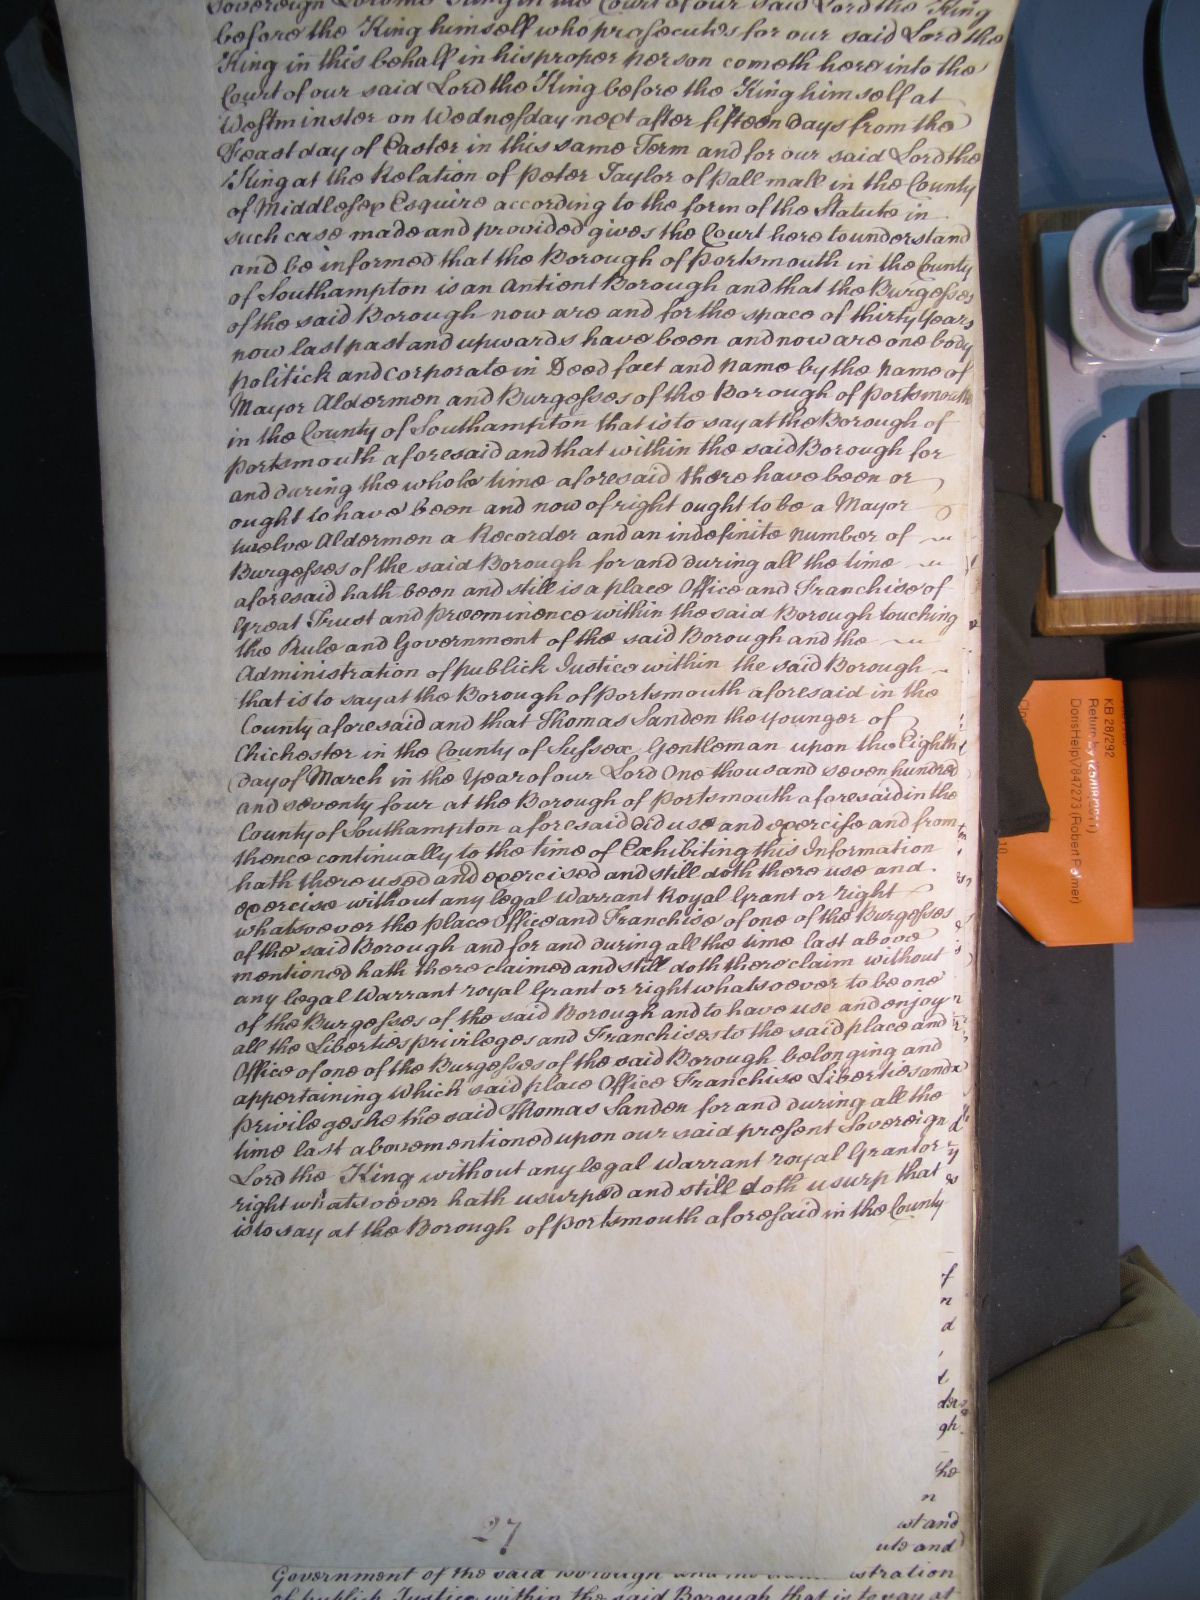 Sovereign Lord the King in the Court of our said Lord the King
before the King himself who prosecutes for our said Lord the
King in this behalf in his proper person cometh here into the
Court of our said Lord the King before the King himself at
Westminster on Wednesday next after fifteen Days from the
Feast day of Easter in this same Term and for our said Lord the
King at the Relation of Peter Taylor of Pall mall in the County
of Middlesex Esquire according to the form of the Statute in
such case made and provided gives the Court here to understand
and be informed that the Borough of Portsmouth in the County
of Southampton is an Antient Borough and that the Burgesses
of the said Borough now are and for the space of thirty Years
now last past and upwards have been and now are one body
politick and corporate in Deed fact and Name by the Name of
Mayor Aldermen and Burgesses of the Borough of Portsmouth
in the County of Southampton that is to say at the Borough of
Portsmouth aforesaid and that within the said Borough for
and during the whole time aforesaid there have been or
ought to have been and now of right ought to be a Mayor
twelve Aldermen a Recorder and an indefinite Number of
Burgesses of the said Borough for and during all the time
aforesaid hath been and still is a place Office and Franchise of
Great Trust and Preeminence within the said Borough touching
the Rule and Government of the said Borough and the
Administration of publick Justice within the said Borough
that is to say at the Borough of Portsmouth aforesaid in the
County aforesaid and that Thomas Sanden the younger of
Chichester in the County of Sussex Gentleman upon the Eighth
day of March in the Year of our Lord One thousand seven hundred
and seventy four at the Borough of Portsmouth aforesaid in the
County of Southampton aforesaid did use and exercise and from
thence continually to the time of Exhibiting this Information
hath there used and exercised and still doth there use and
exercise without any legal Warrant Royal Grant or right
whatsoever the place Office and Franchise of one of the Burgesses
of the said Borough and for and during all the time last above
mentioned hath there claimed and still doth there claim without
any legal Warrant royal Grant or right whatsoever to be one
of the Burgesses of the said Borough and to have use and enjoy
all the Liberties privileges and Franchises to the said place and
Office of one of the Burgesses of the said Borough belonging and
appertaining Which said place Office Franchise Liberties and
privileges he the said Thomas Sanden for and during all the
time last abovementioned upon our said present Sovereign
Lord the King without any legal Warrant royal Grant or
right whatsoever hath usurped and still doth usurp that
is to say at the Borough of Portsmouth aforesaid in the County
f
n
d
t
gh
the
n
ust and
ute and
27
Government of the said Borough and stration
of publick Justice within the said Borough that is to say at
KB 28/292
Return by (25/08/2011)
DorisHelp\7847273 (Robert Palmer)